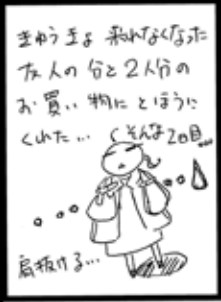 きゅうきょ 来れなくなった
友人の分と2人分の
お買い物に とほうに
くれた… そんな2日目…
肩抜ける…